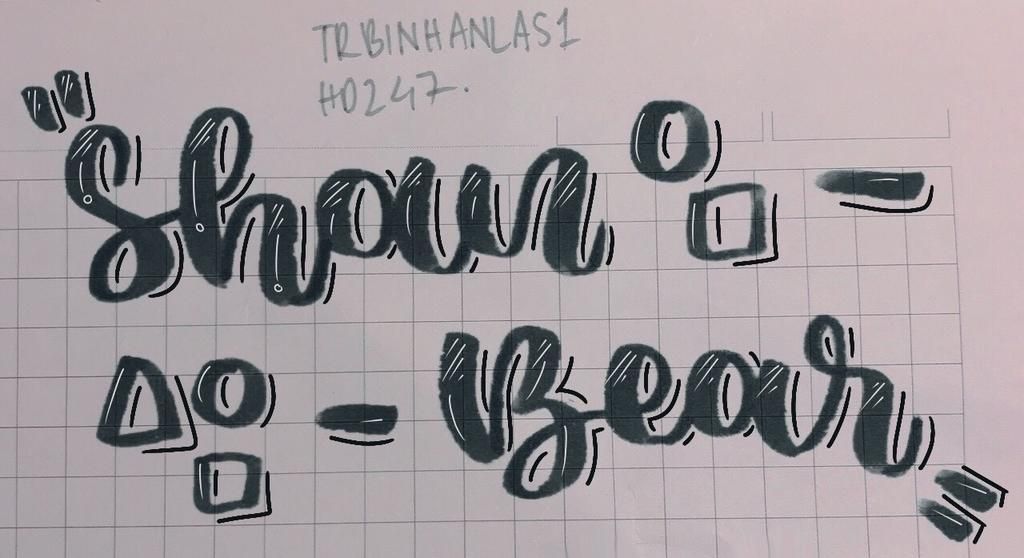 TRBINHANLAS1
H0247.
"Shaun ○□ -
△○□ - Bear"